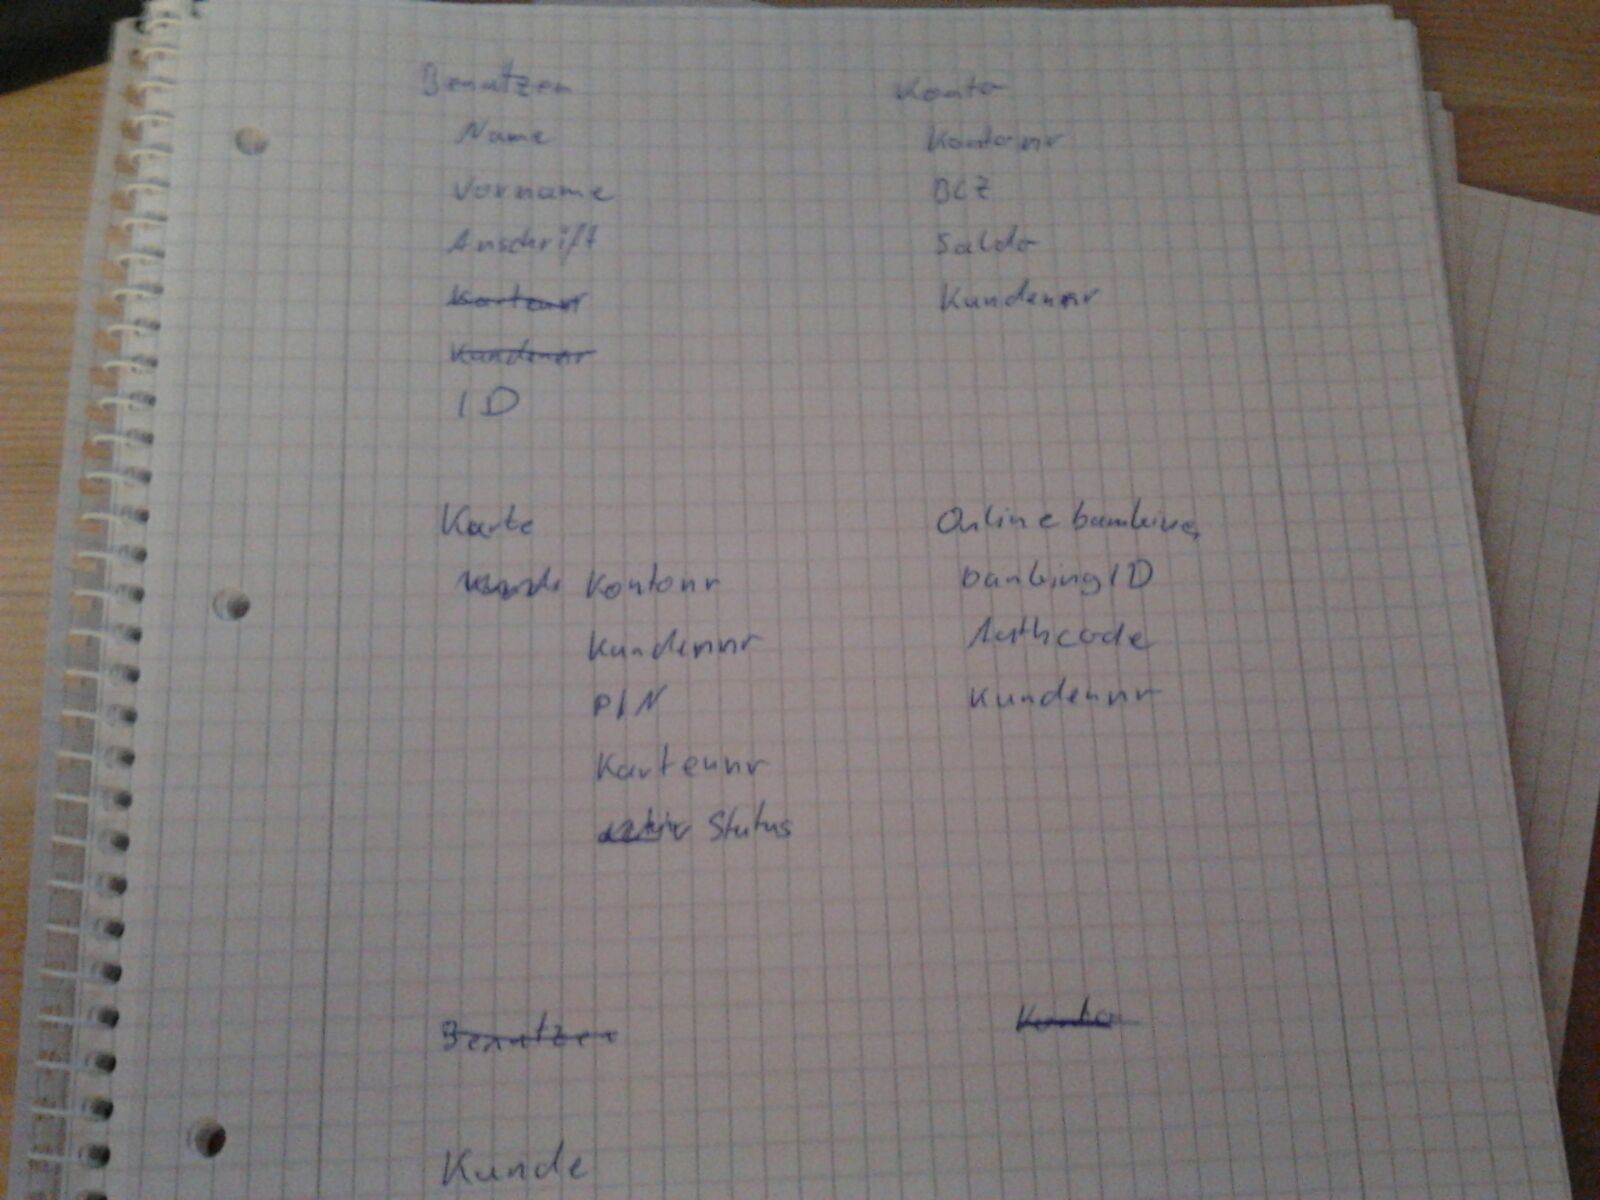 Benutzer
Name
Vorname
Anschrift
Kartennr
Kundennr
ID
Konto
Kontonr
BLZ
Saldo
Kundennr
Karte
Kontonr
Kundennr
PIN
Kartennr
aktiv Status
Onlinebanking
bankingID
Authcode
Kundennr
Benutzer
Konto
Kunde